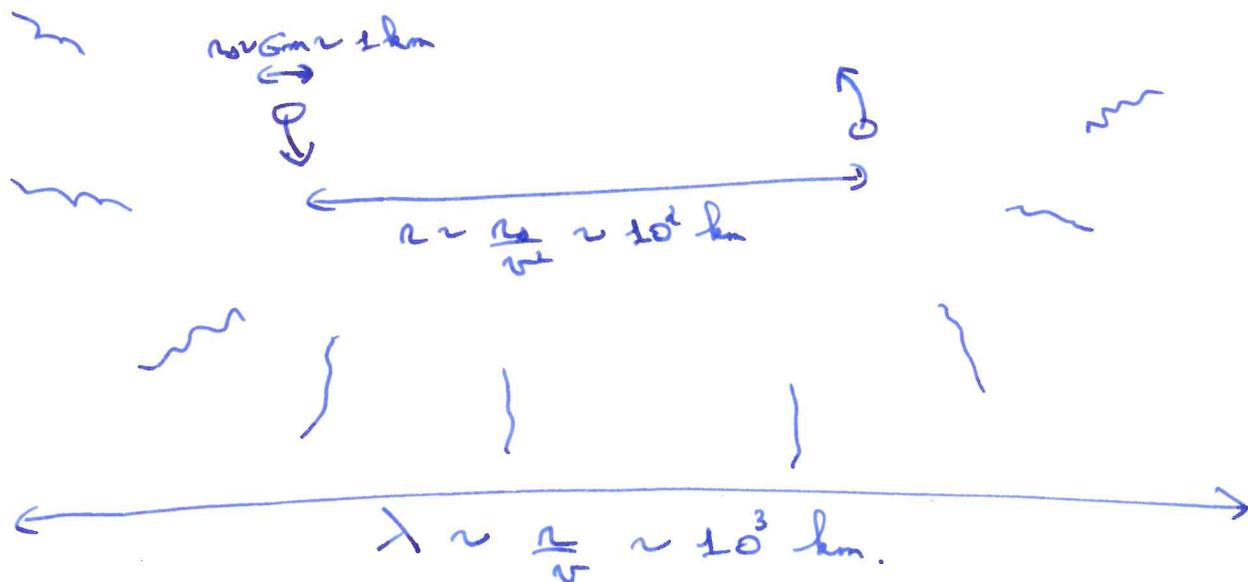 r₀ ~ Gm ~ 1 km
r ~ r₀/v² ~ 10² km
λ ~ r/v ~ 10³ km.